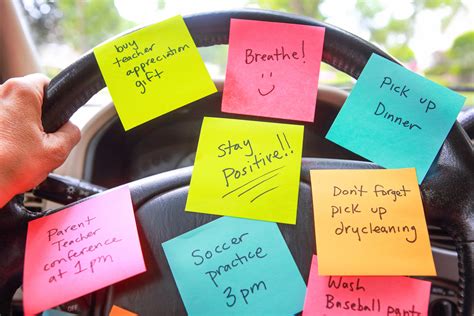 buy
teacher
appreciation
gift
Breathe!
Pick up
Dinner
Stay
Positive!!
Don't forget
pick up
drycleaning
Parent
Teacher
conference
at 1pm
Soccer
practice
3pm
Wash
Baseball pants